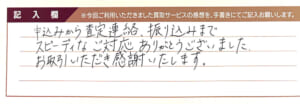 記入欄
※今回ご利用いただきました買取サービスの感想を、手書きにてご記入お願いします。
申込みから査定連絡、振り込みまで
スピーディなご対応ありがとうございました。
お取引いただき感謝いたします。